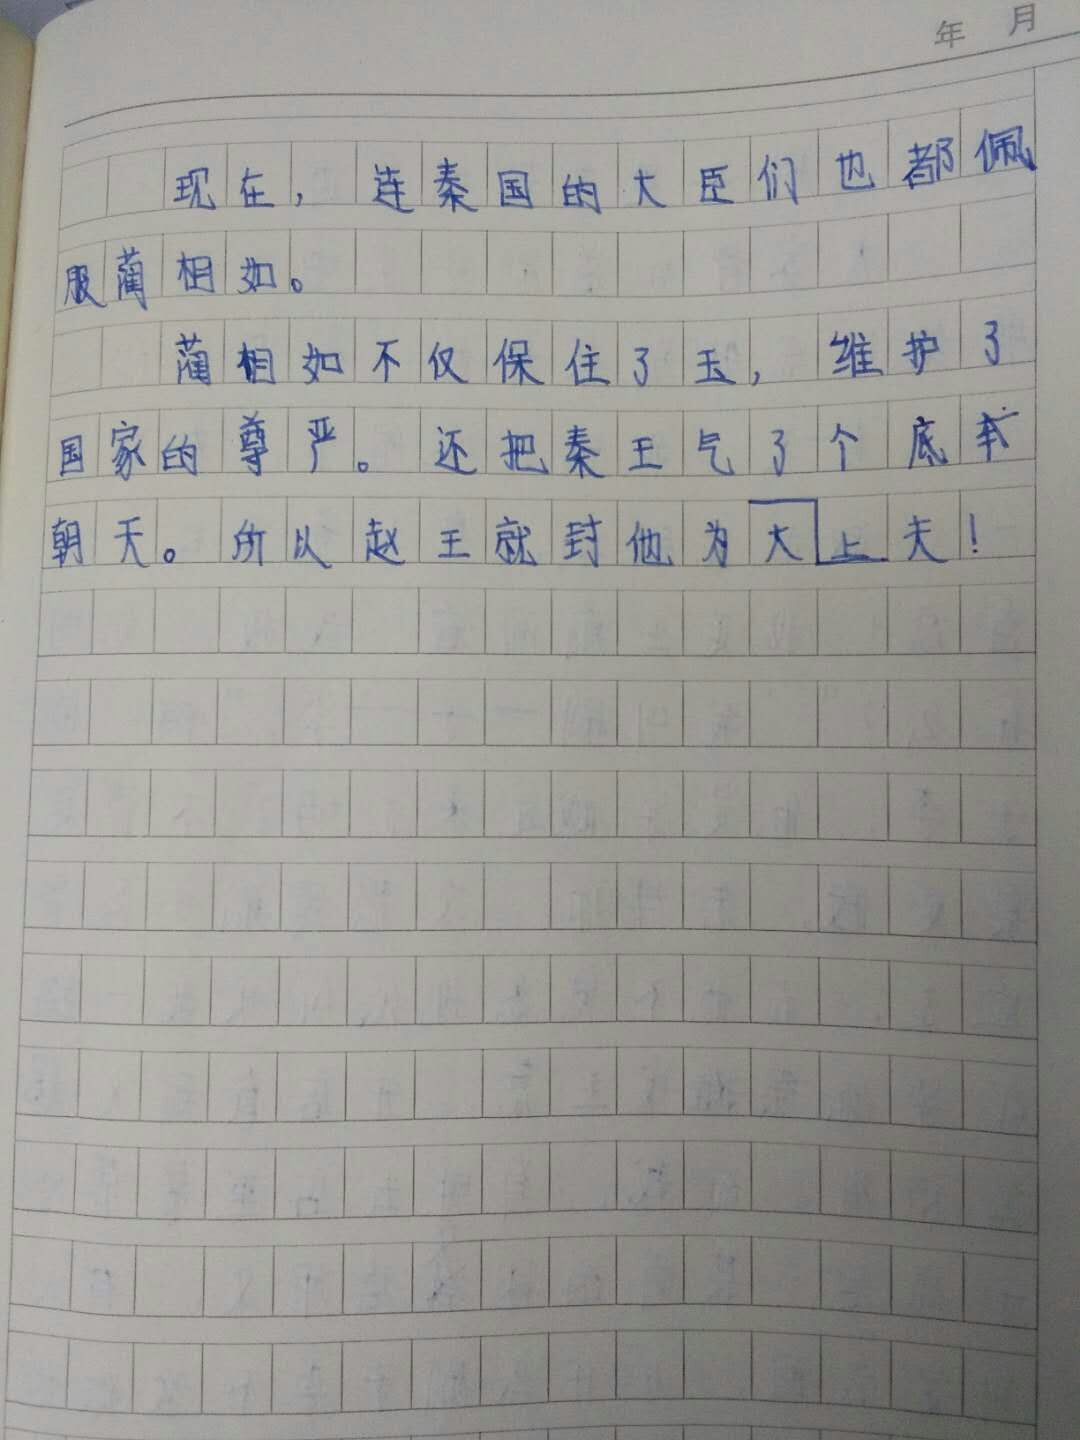 年 月
现在，连秦国的大臣们也都佩
服蔺相如。
蔺相如不仅保住了玉，维护了
国家的尊严。还把秦王气了个底
朝天。所以赵王就封他为大上夫！